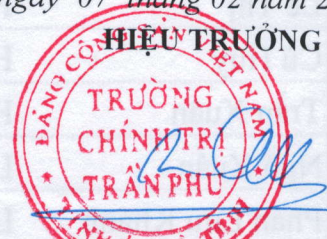 ngày 07 tháng 02 năm 2
HIỆU TRƯỞNG
ĐẢNG CỘNG SẢN VIỆT NAM
TRƯỜNG
CHÍNH TRỊ
TRẦN PHÚ
TỈNH